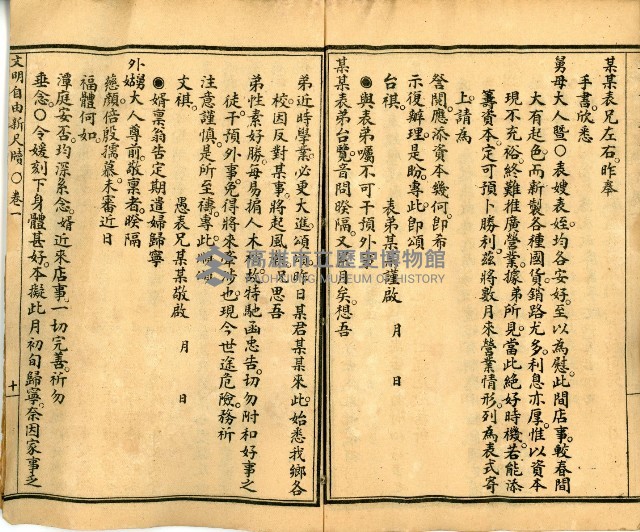 某某表兄左右。昨奉
手書欣悉
舅母大人暨〇表嫂表姪均各安好。至以為慰。此間店事。較春間
大有起色。而新製各種國貨。銷路尤多。利息亦厚。惟以資本
現不充裕。終難推廣營業。據弟所見。當此絕好時機。若能添
籌資本。定可預卜勝利。茲將數月來營業情形。列為表式寄
上。請為
詧閱。應添資本幾何。即布
示復辦理。是盼。專此。即頌
台祺。 表弟某某謹啟 月 日
◉與表弟囑不可干預外事
某某表弟台覽。音問暌隔。又匝月矣。想吾
弟近時學業。必更大進。頌甚。昨日某君某某來此。始悉我鄉各
校。因反對某事。將起風潮。兄思吾
弟性素好勝。每易揎人木梢。故特馳函忠告。切勿附和好事之
徒。干預外事。免得將來干涉也。現今世途危險。務祈
注意謹慎。是所至禱。專此。即頌
文棋。 愚表兄某某敬啟 月 日
◉婿稟翁告定期遣婦歸寧
外舅姑大人尊前。敬稟者。暌隔
慈顏。倍殷孺慕。未審近日
福體何如。
潭庭安否。均深系念。婿近來店事。一切完善。祈勿
垂念。〇令媛刻下身體甚好。本擬此月初旬歸寧。奈因家事之
文明自由新尺牘 〇卷一 十
高雄市立歷史博物館
KAOHSIUNG MUSEUM OF HISTORY